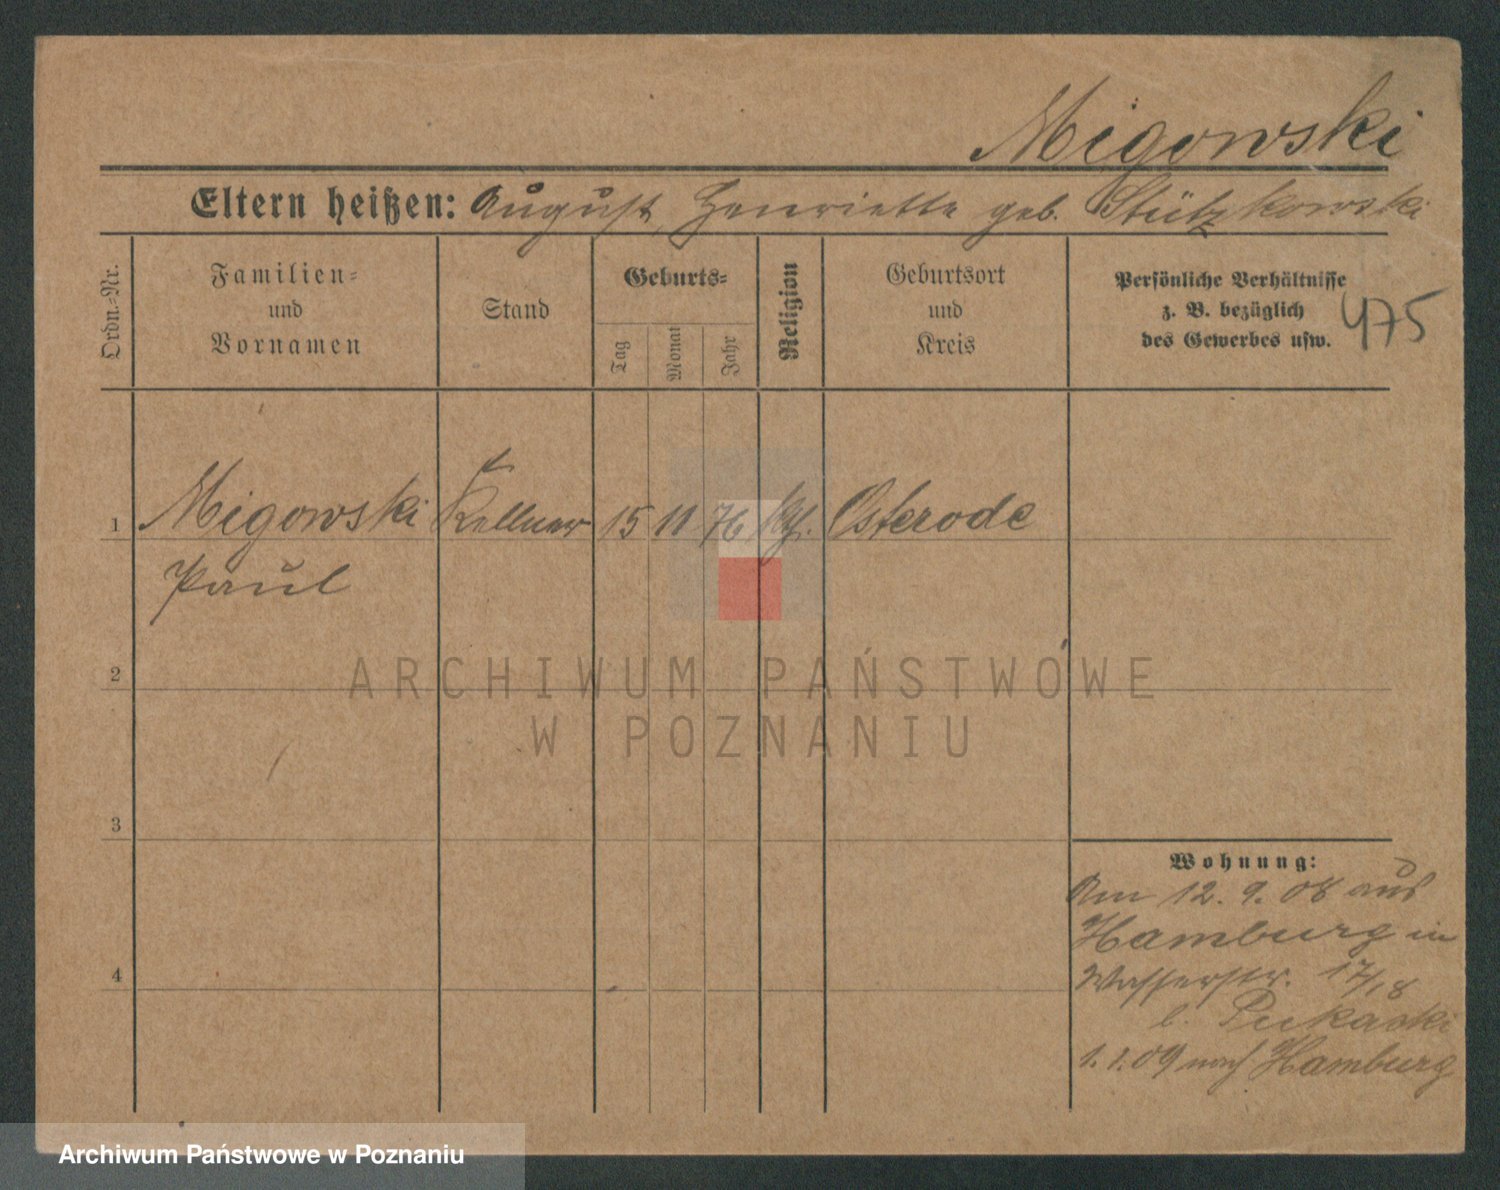 Migowski
Eltern heißen: August, Henriette geb. Stützkowski
Ordn.-Nr.
Familien-
und
Vornamen
Stand
Geburts-
Tag
Monat
Jahr
Religion
Geburtsort
und
Kreis
Persönliche Verhältnisse
z. B. bezüglich
des Gewerbes usw.
475
1 Migowski Kellner 15 11 76 Osterode
Paul
2
3
4
Wohnung:
Am 12. 9. 08 aus
Hamburg in
Wasserstr. 17/18
b.
1. 1. 09 nach Hamburg
ARCHIWUM PAŃSTWOWE
W POZNANIU
Archiwum Państwowe w Poznaniu